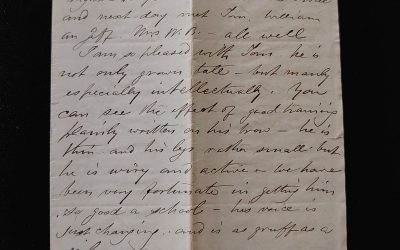 and next day met Tom, William
an Jeff Mrs W.B. – all well
I am so pleased with Tom. he is
not only grown tall – but manly
especially intellectually. You
can see the effect of good training
plainly written on his brow – he is
thin and his legs rather small but
he is wiry and active – We have
been very fortunate in getting him
so good a school – his voice is
just changing. and is as gruff as a